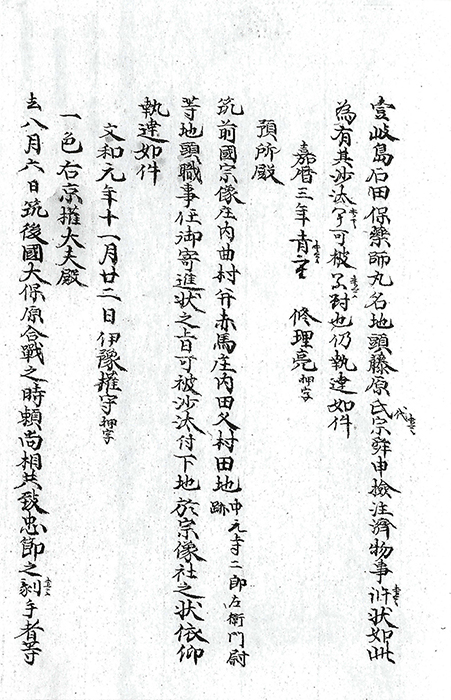 壹岐島石田保藥師丸名地頭藤原氏宗代舜申檢注濟物事訴状如此
為有其沙汰可被也仍執達如件
嘉暦三年 修理亮押字
預所殿
筑前國宗像庄内曲村并赤馬庄内田久村田地中元寺二郎左衛門尉跡
等地頭職事任御寄進状之旨可被沙汰付下地於宗像社之状依仰
執達如件
文和元年十一月廿二日伊豫權守押字
一色右京權大夫殿
去八月六日筑後國大保原合戰之時頼尚相共致忠節之刻手者等